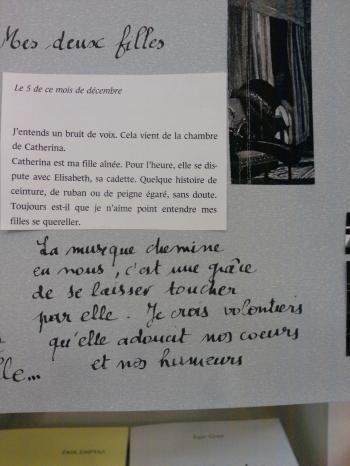 Mes deux filles
Le 5 de ce mois de décembre
J'entends un bruit de voix. Cela vient de la chambre
de Catherina.
Catherina est ma fille aînée. Pour l'heure, elle se dis-
pute avec Elisabeth, sa cadette. Quelque histoire de
ceinture, de ruban ou de peigne égaré, sans doute.
Toujours est-il que je n'aime point entendre mes
filles se quereller.
La musique chemine
en nous, c'est une grâce
de se laisser toucher
par elle. Je crois volontiers
qu'elle adoucit nos coeurs
et nos humeurs
lle...